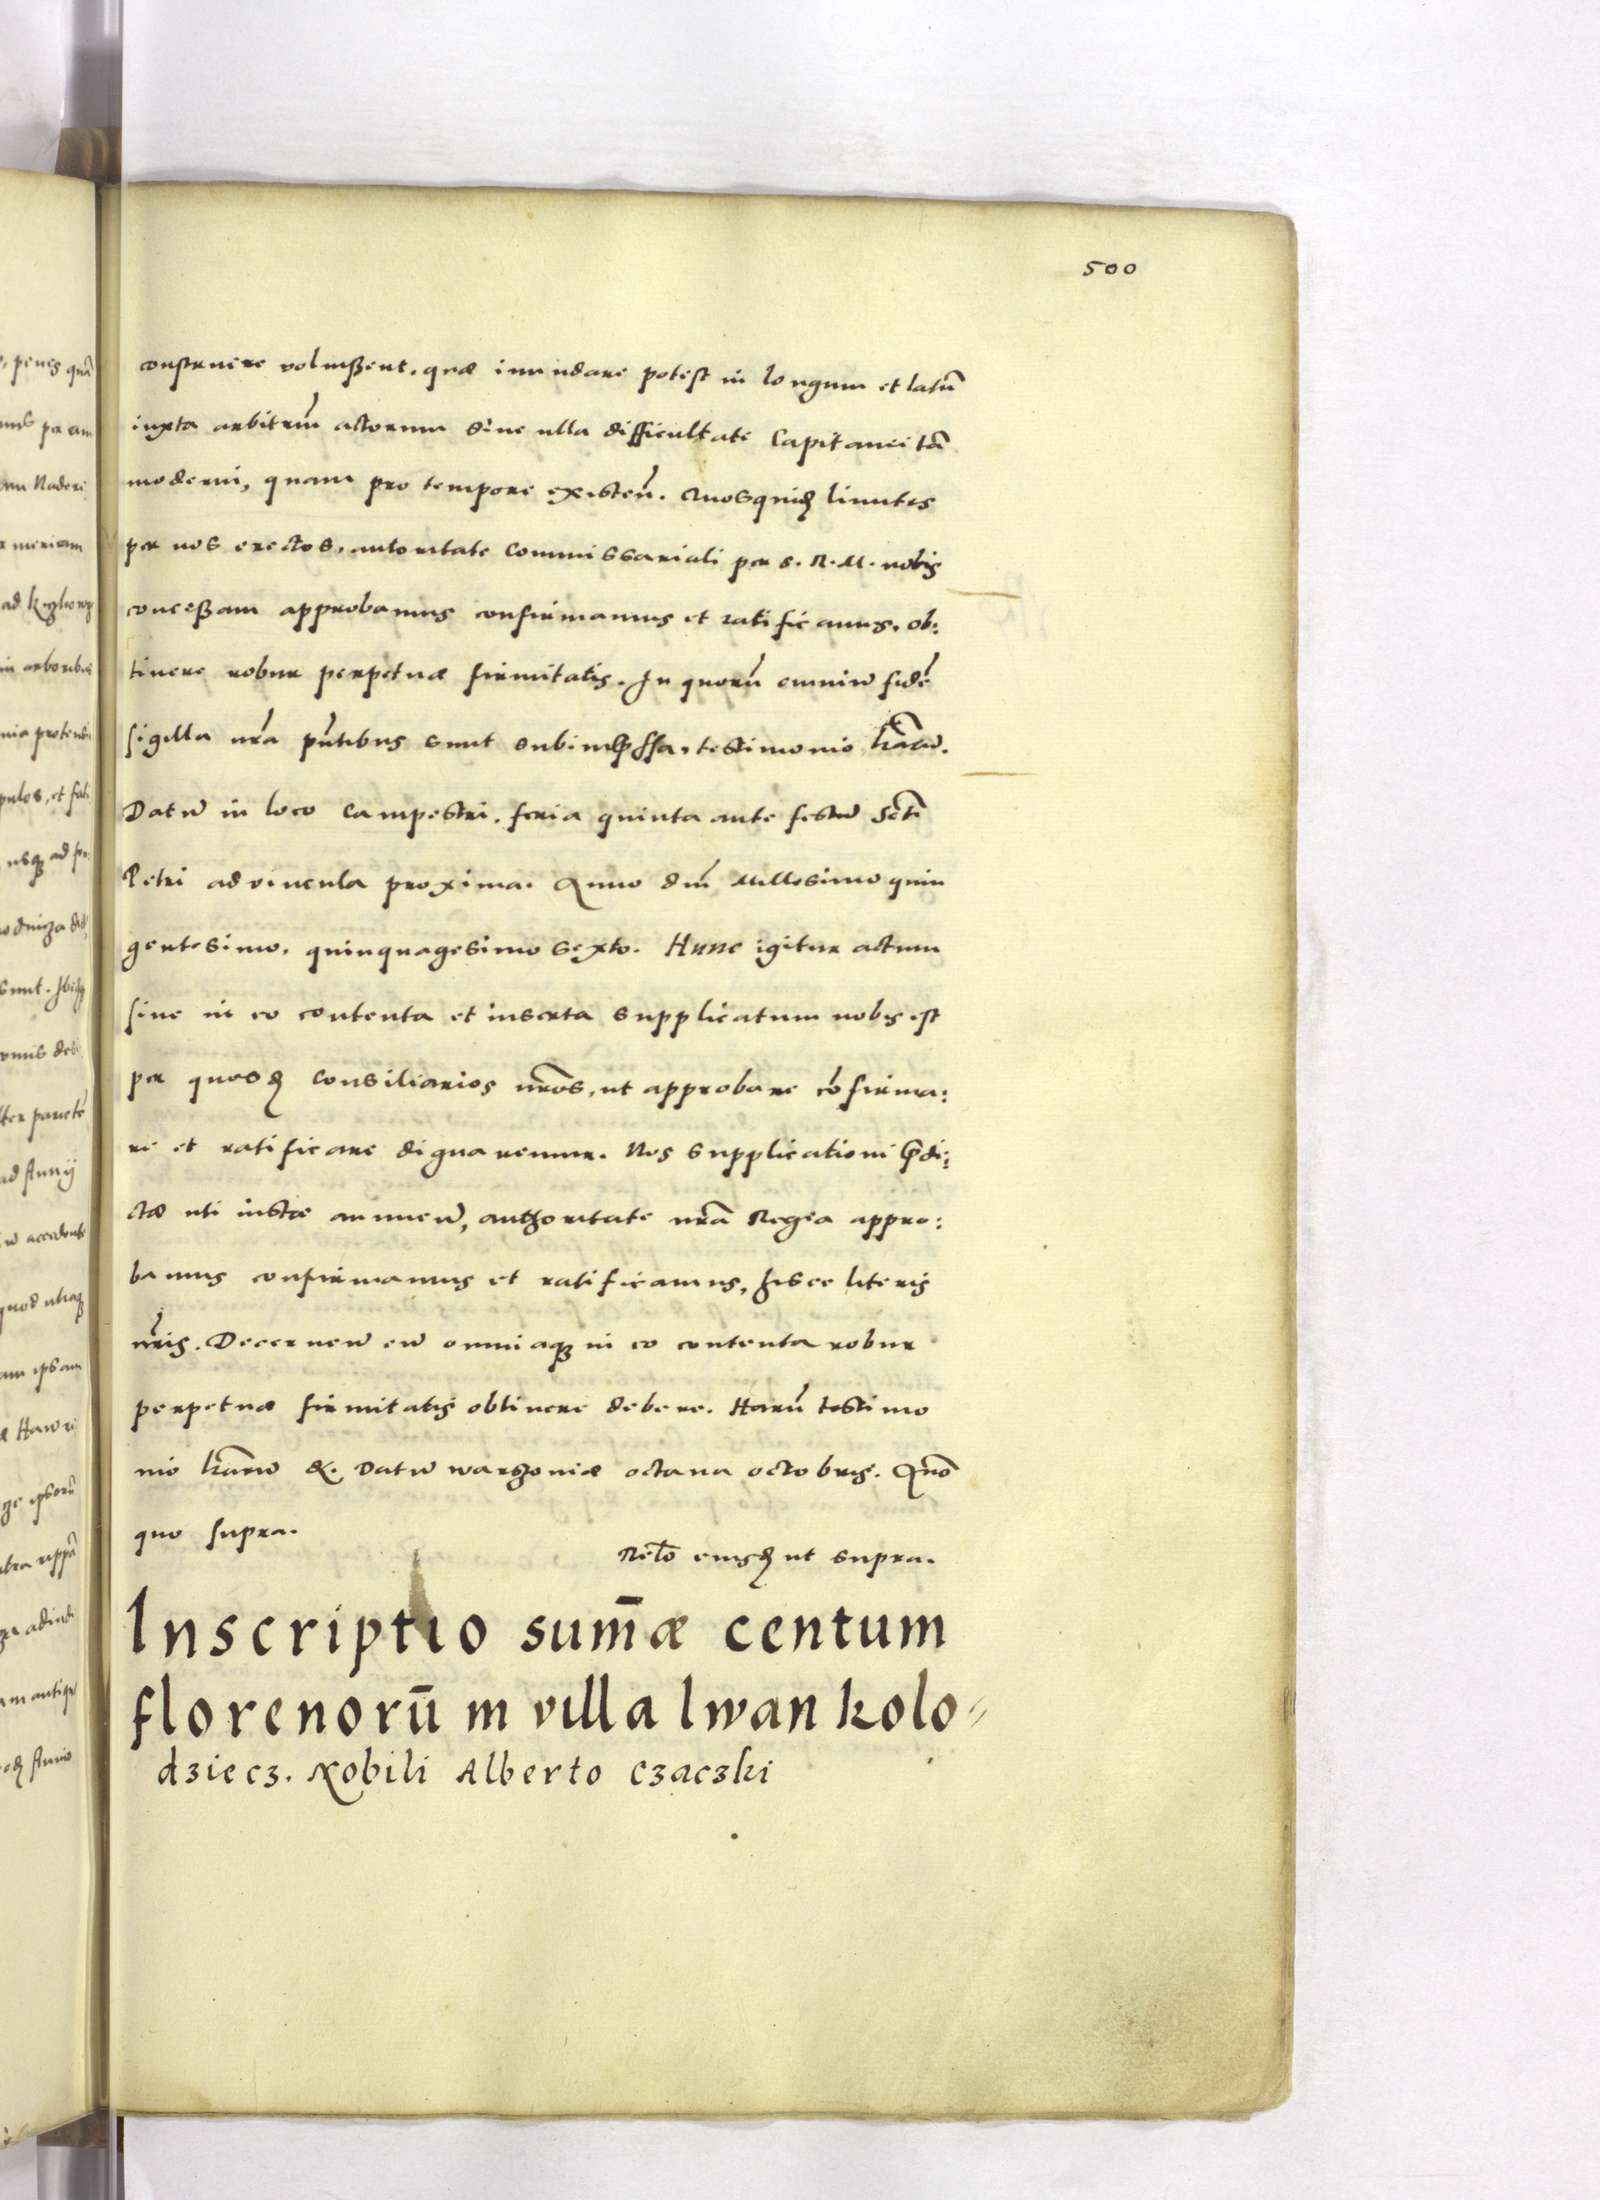 500
construere voluissent. quæ inundare potest in longum et latū
iuxta arbitriū actorum sine ulla difficultate Capitanei tā
moderni, quam pro tempore existeñ. Quosquidē limites
per nos erectos, autoritate Commissariali per S. R. M. nobis
concessam approbamus confirmamus et ratificamus. ob:
tinere robur perpetuæ firmitatis. In quorū omniū fidē
sigilla nrā pñtibus sunt subimpressa, testimonio lrārū.
Datū in loco Campestri. feria quinta ante festū Scti
Petri ad vincula proxima. Anno dñi Millesimo quin
gentesimo, quinquagesimo sexto. Hunc igitur actum
sive in eo contenta et inserta supplicatum nobis est
per quosdā Consiliarios nrōs, ut approbare cōfirma:
re et ratificare dignaremur. Nos supplicationi p̄di:
ctæ uti iustæ annueñ, authoritate nrā Regia appro:
bamus confirmamus et ratificamus, hisce literis
nr̄is. Decerneñ eū omniaq; in eo contenta robur
perpetuæ firmitatis obtinere debere. Harū testimo
nio lrārū &. Datū warszoviæ octava octobris. Anō
quo supra.
Relō eiusdē ut supra.
Inscriptio sum̄æ centum
florenorū in villa Iwan kolo=
dziecz. Nobili Alberto Czaczki